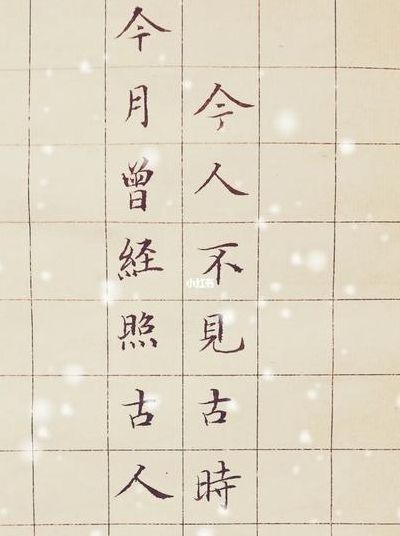 今人不見古時
今月曾経照古人
小红书